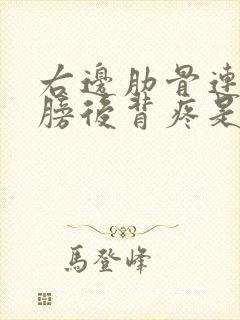 右邊肋骨連
膀後背疼是
馬登峰